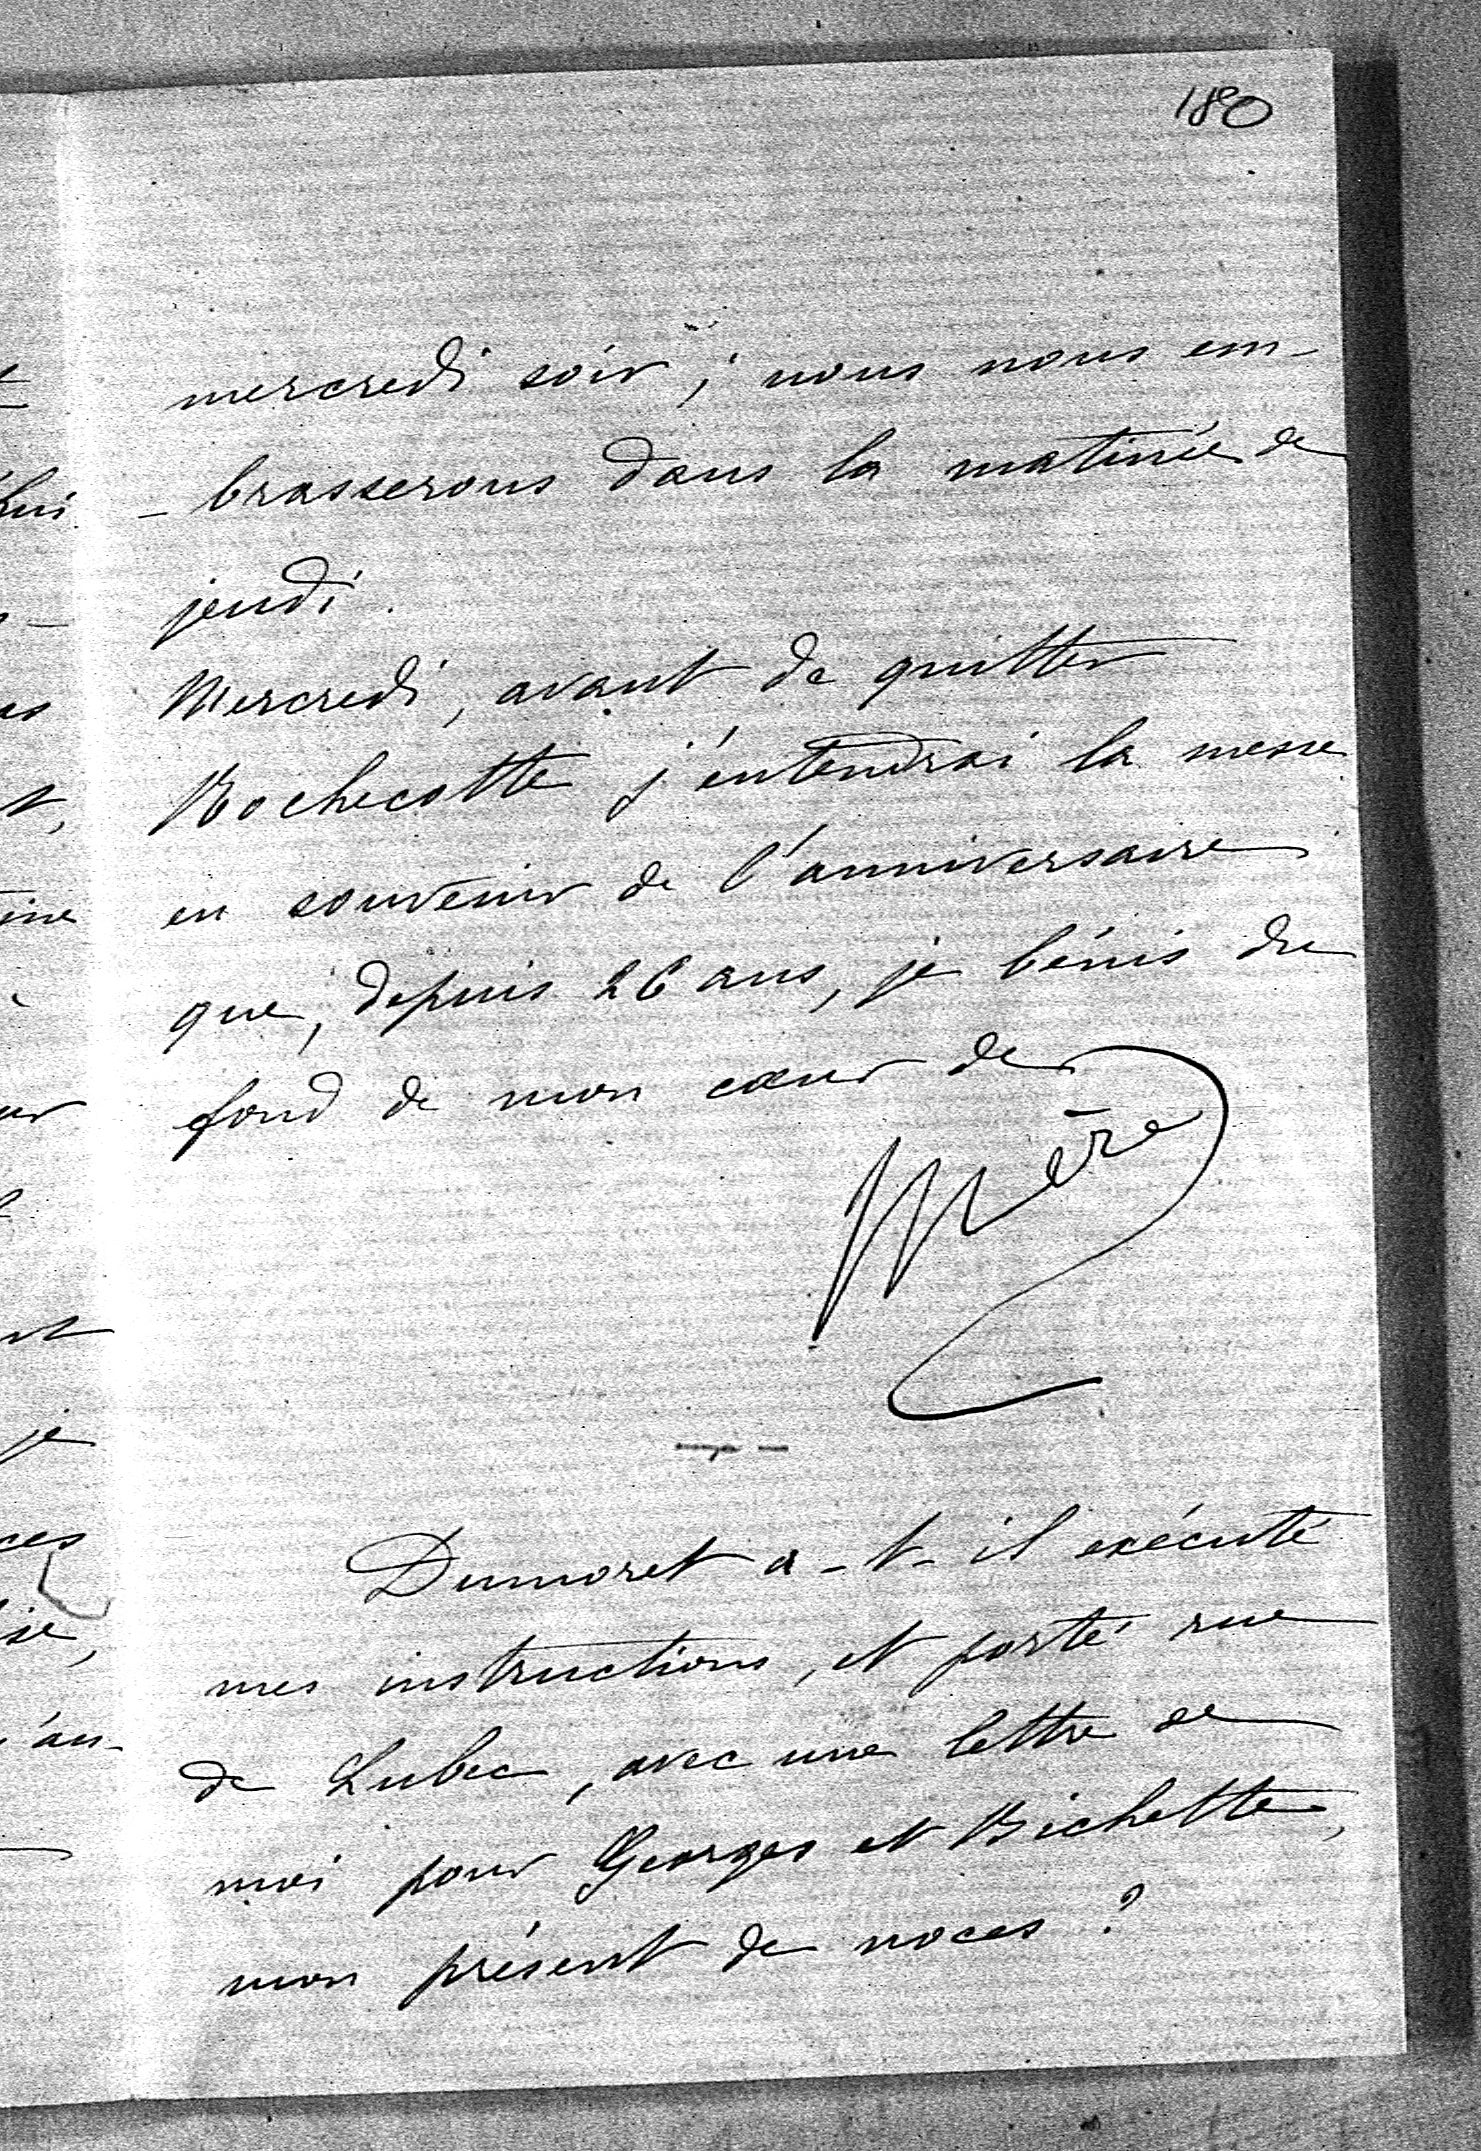 180
mercredi soir ; nous nous em-
- brasserons dans la matinée de
jeudi.
Mercredi, avant de quitter
Rochecotte j'entendrai la messe
en souvenir de l'anniversaire
que, depuis 26 ans, je bénis du
fond de mon cœur de
Mère
Dumoret a-t-il exécuté
mes instructions, et porté rue
de Lubec, avec une lettre de
moi pour Georges et Bichette,
mon présent de noces ?